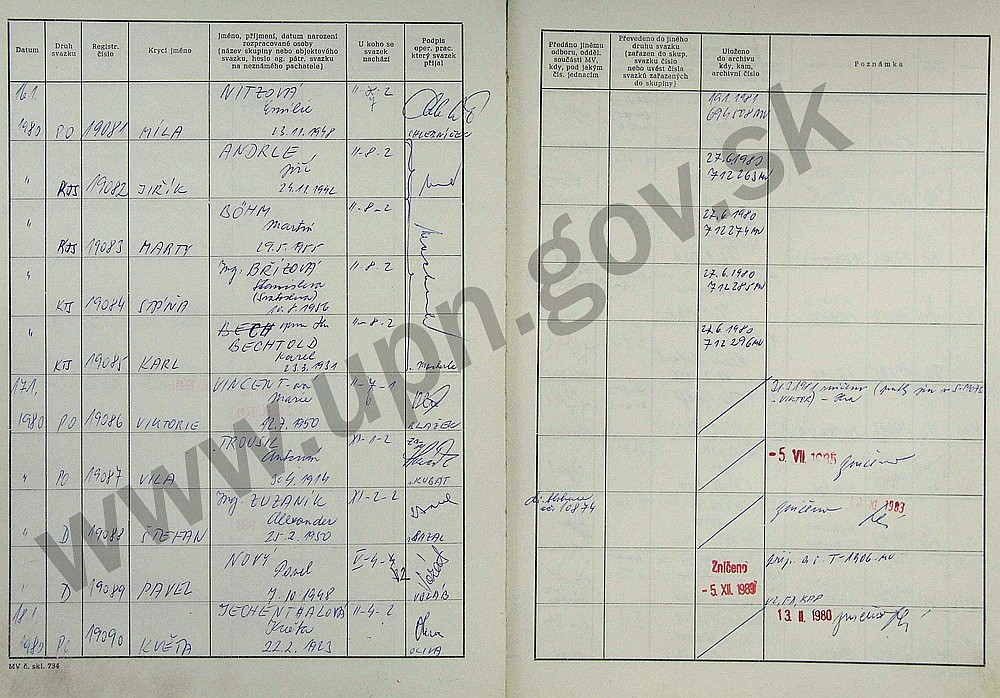 Datum
Druh svazku
Registr. číslo
Krycí jméno
Jméno, příjmení, datum narození
rozpracované osoby
(název skupiny nebo objektového
svazku, heslo ag. pátr. svazku
na neznámého pachatele)
U koho se
svazek
nachází
Podpis
oper. prac.
který svazek
přijal
Předáno jinému
odboru, odděl.
součásti MV,
kdy, pod jakým
čís. jednacím
Převedeno do jiného
druhu svazku
(zařazen do skup,
svazku číslo
nebo uvést čísla
svazků zařazených
do skupiny)
Uloženo
do archivu
kdy, kam,
archivní číslo
Poznámka
16.1. NITZOVÁ II-8-2 19.1.1981
Emilie 694508 MV
1980 PO 19081 MÍLA 23.11.1948
ANDRLE II-8-2 27.6.1980
Jiří 712263 MV
" KTS 19082 JIŘÍK
BÖHM II-8-2 27.6.1980
Martin 712274 MV
" KTS 19083 MARTY 29.5.1955
Ing. BŘÍZOVÁ II-8-2 27.6.1980
Stanislava 712285 MV
" KTS 19084 STÁŇA 10.8.1956
" II-8-2 27.6.1980
BECHTOLD 712296 MV
Karel
KTS 19085 KARL 23.3.1931
17.1. VINCENT II-7-1
Marie
1980 PO 19086 VIKTORIE 12.7.1950 BLAŽEK
- VIKTOR)
TROUSIL XI-1-2
Antonín - 5. VII. 1985 zničeno
" PO 19087 VILA KUBÁT
Ing. ZUZANÍK XI-2-2
Alexander 10874 zničeno XI. 1983
" D 19088 ŠTEFAN 25.2.1950 BAZAL
NOVÝ
Pavel Zničeno T-1906 MV
- 5. XII. 1989
" D 19089 PAVEL 7.10.1948
18.1. JECHENTHALOVÁ II-4-2 13. II. 1980 zničeno
Květa
1980 PO 19090 KVĚTA 22.2.1923 OLIVA
MV č. skl. 734
www.upn.gov.sk